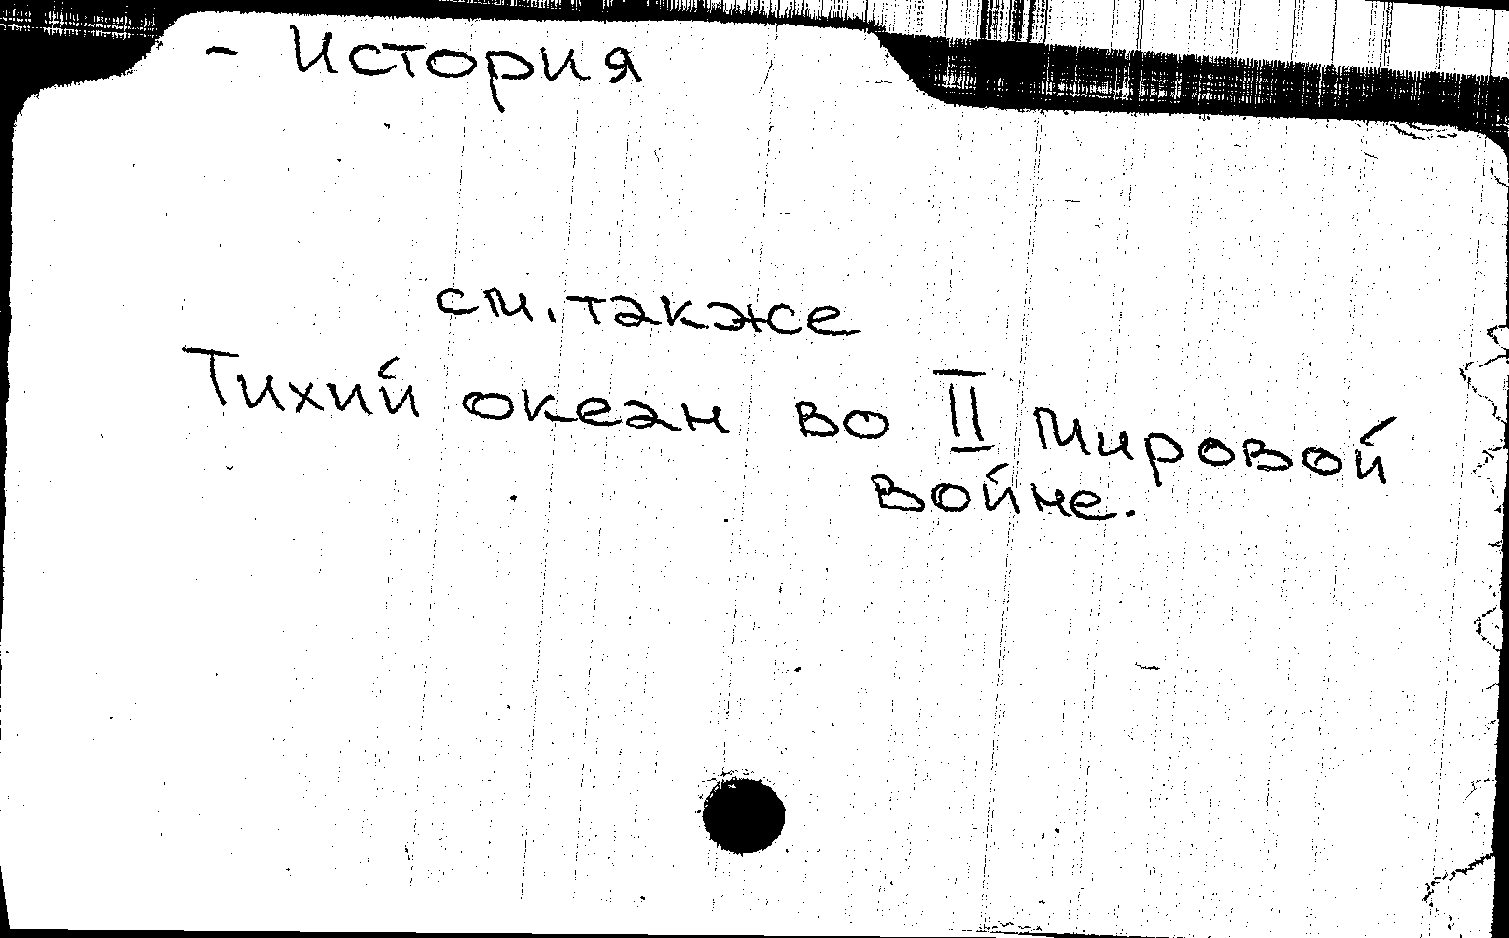 - История
см. также
Тихий океан во II Мировой
войне.